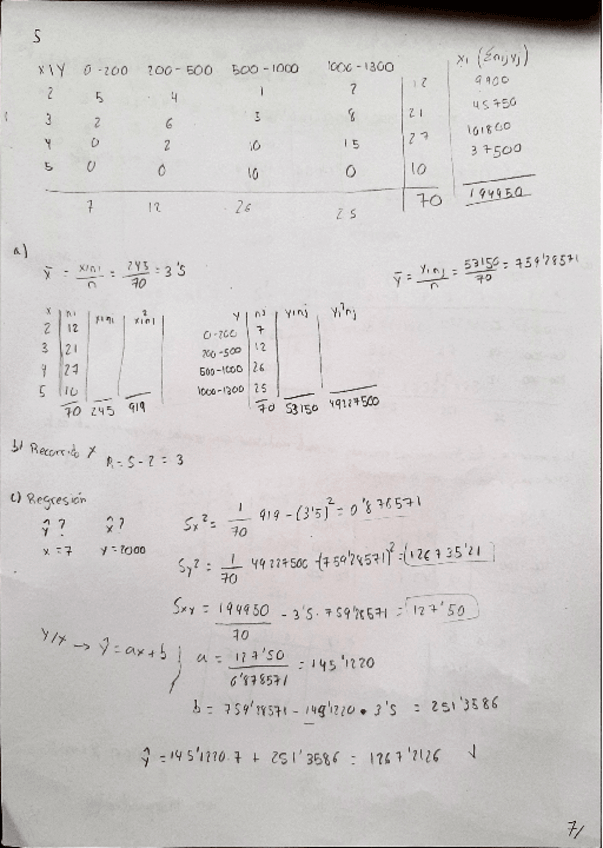 5
X\Y 0-200 200-500 500-1000 1000-1300 xi (Σnijyj)
2 5 4 1 2 12 9900
3 2 6 5 8 21 45750
4 0 2 10 15 27 101800
5 0 0 10 0 10 37500
7 12 26 25 70 194950
a)
x̄ = xini/n = 245/70 = 3'5 ȳ = yinj/n = 53150/70 = 759'28571
x ni xini xi²ni y nj yinj yi²nj
2 12 0-200 7
3 21 200-500 12
4 27 500-1000 26
5 10 1000-1300 25
70 245 919 70 53150 49227500
b) Recorrido X
R = 5 - 2 = 3
c) Regresión
ŷ? x̂?
x = 7 y = 2000
Sx² = 1/70 919 - (3'5)² = 0'878571
Sy² = 1/70 49227500 - (759'28571)² = 126735'21
Sxy = 194950/70 - 3'5 · 759'28571 = 127'50
Y/X → ŷ = ax + b
a = 127'50/0'878571 = 145'1220
b = 759'28571 - 145'1220 • 3'5 = 251'3586
ŷ = 145'1220·7 + 251'3586 = 1267'2126
7/